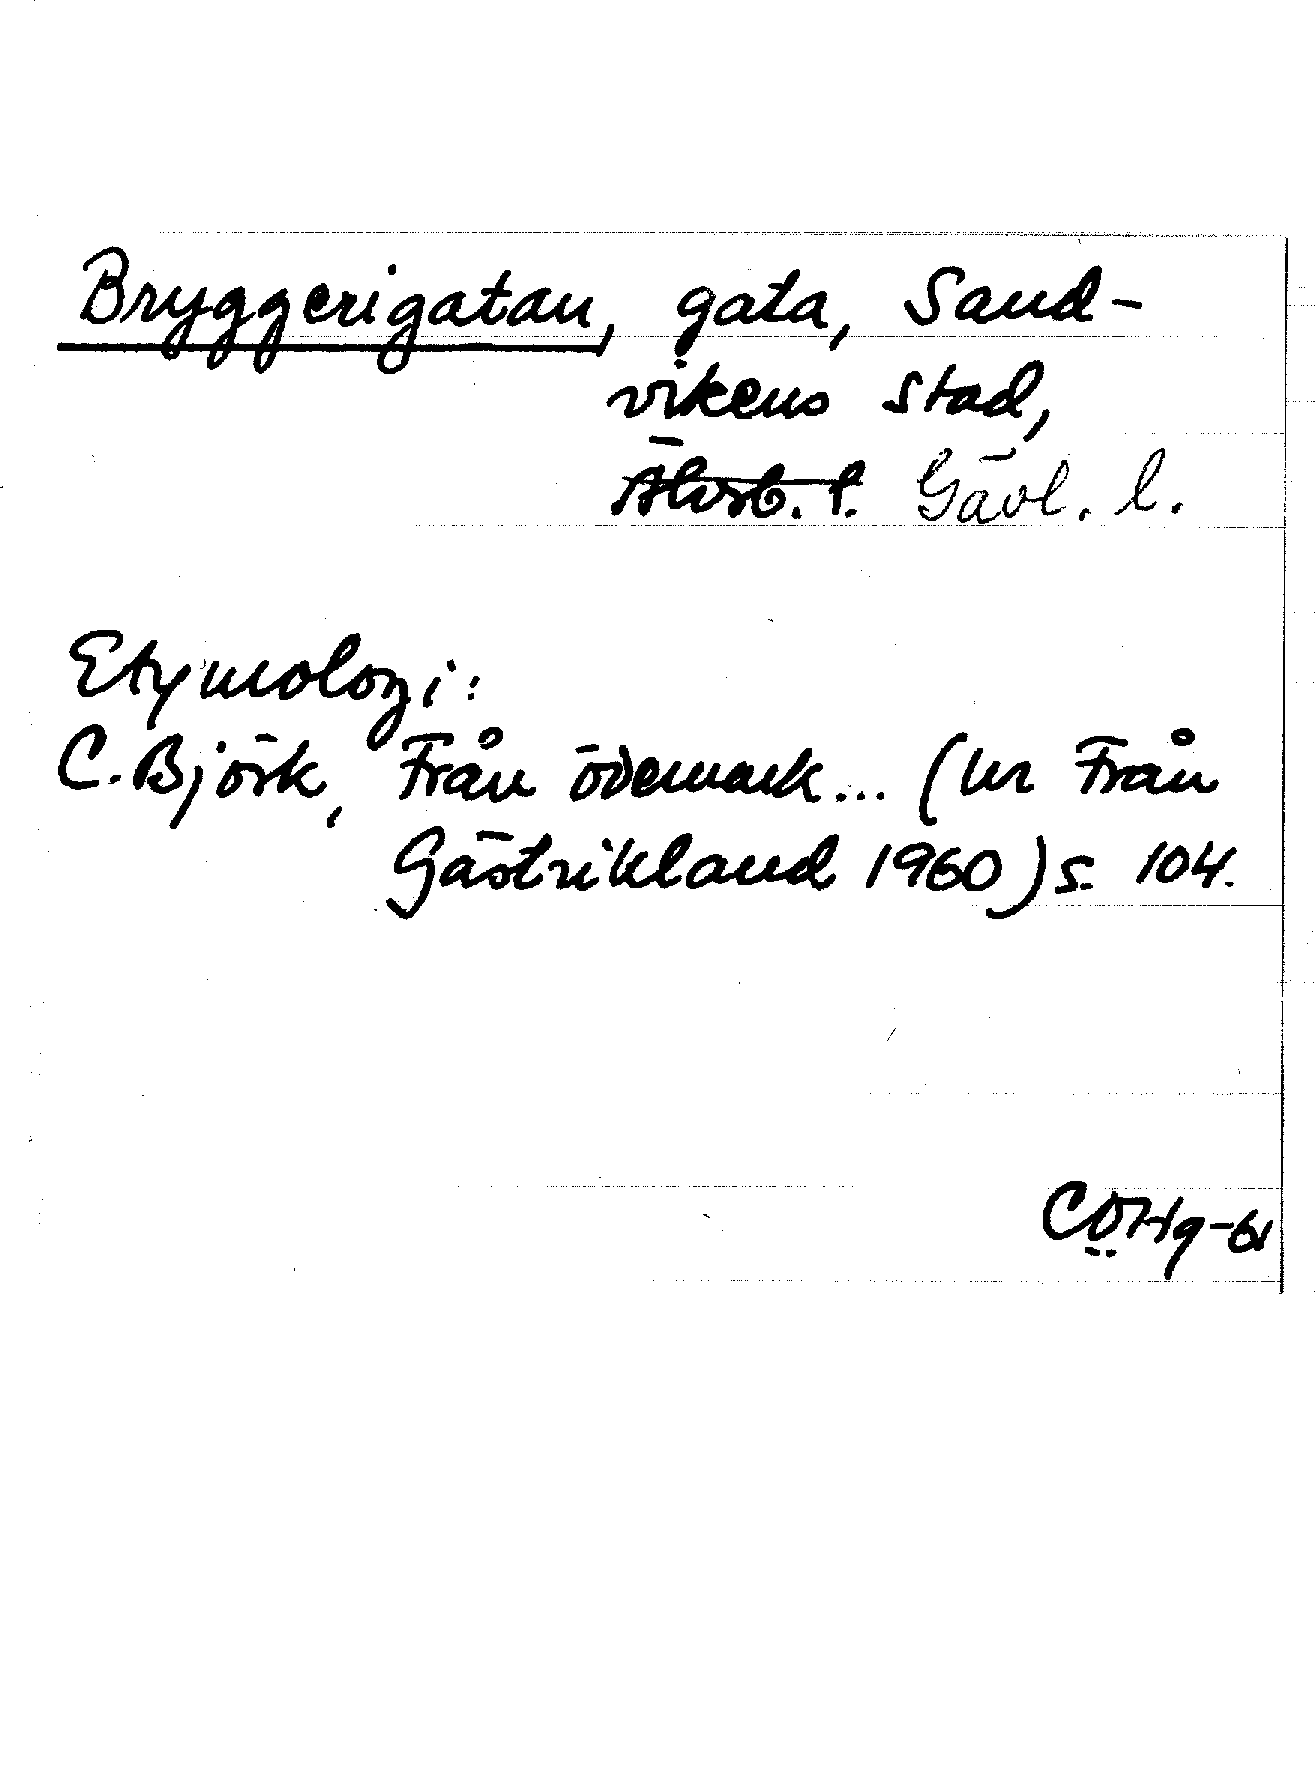 Bryggerigatan, gata, Sand-
vikens stad,
Älvsb. l. Gävl. l.
Etymologi:
C. Björk, Från ödemark... (ur Från
Gästrikland 1960) s. 104.
CÖHg-61